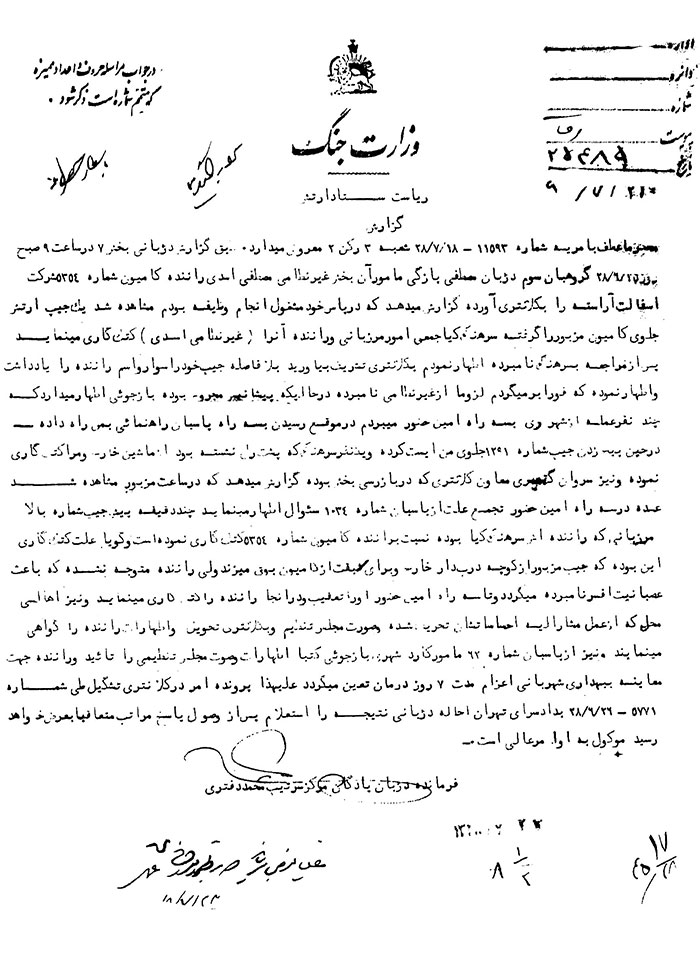 در جواب مراسله حروف و اعداد ممیزه
که متمم شماره است ذکر شود.
اداره
دائره
شماره
پیوست
تاریخ
۲۵۴۸۹
وزارت جنگ
ریاست ستاد ارتش
گزارش
محترما عطف بامریه شماره ۱۱۵۹۳ - ۲۸/۷/۱۸ شعبه ۳ رکن ۲ معروض میدارد طبق گزارش دژبانی بخش ۷ در ساعت ۹ صبح
روز ۲۸/۶/۲۵ گروهبان سوم دژبان مصطفی بازگی مامور آن بخش غیرنظامی مصطفی اسدی راننده کامیون شماره ۵۳۵۴ شرکت
اسفالت آراسته را بکلانتری آورده گزارش میدهد که در پاس خود مشغول انجام وظیفه بودم مشاهده شد یک جیپ ارتش
جلوی کامیون مزبور را گرفته سرهنگ کیا جمعی امور مرزبانی و راننده آنرا (غیرنظامی اسدی) کتک کاری مینماید
پس از مراجعه بسرهنگ نامبرده اظهار نمودم بکلانتری تشریف بیاورید بلافاصله جیپ خود را سوار واسم راننده را یادداشت
واظهار نموده که فورا برمیگردم لزوما از غیرنظامی نامبرده در حالیکه پیشانیش مجروح بوده بازجوئی اظهار میدارد که
چند نفر عمله از شهر ری بسه راه امین حضور میبردم در موقع رسیدن بسه راه پاسبان راهنمائی بمن راه داده
در حین پیچ زدن جیپ شماره ۱۳۵۱ جلوی من ایست کرده ویک نفر سرهنگ که پشت رل نشسته بود از ماشین خارج ومرا کتک کاری
نموده ونیز سروان معاون کلانتری که در بازرسی بخش بوده گزارش میدهد که در ساعت مزبور مشاهده شد
عده در سه راه امین حضور تجمع علت از پاسبان شماره ۱۰۳۴ سئوال اظهار مینماید چند دقیقه پیش جیپ شماره بالا
مرزبانی که راننده اش سرهنگ کیا بوده نسبت براننده کامیون شماره ۵۳۵۴ کتک کاری نموده است وگویا علت کتک کاری
این بوده که جیپ مزبور از کوچه دربدار خارج وبرای سبقت از کامیون بوق میزند ولی راننده متوجه نشده که باعث
عصبانیت افسر نامبرده میگردد وتا سه راه امین حضور اورا تعقیب ودر آنجا راننده را کتک کاری مینماید ونیز اهالی
محل که از عمل مشارالیه احساساتشان تحریک شده وصورت مجلس تنظیم وبکلانتری تحویل واظهارات راننده را گواهی
مینمایند ونیز از پاسبان شماره ۶۲ مامور گارد شهری بازجوئی کتبا اظهارات وصورت مجلس تنظیمی را تائید وراننده جهت
معاینه ببهداری شهربانی اعزام مدت ۷ روز درمان تعیین میگردد علیهذا پرونده امر در کلانتری تشکیل طی شماره
۵۷۷۱ - ۲۸/۶/۲۶ بدادسرای تهران احاله دژبانی نتیجه را استعلام پس از وصول پاسخ مراتب متعاقبا بعرض خواهد
رسید موکول به اوامر عالی است
فرمانده دژبان پادگان مرکز سرتیپ محمد دفتری